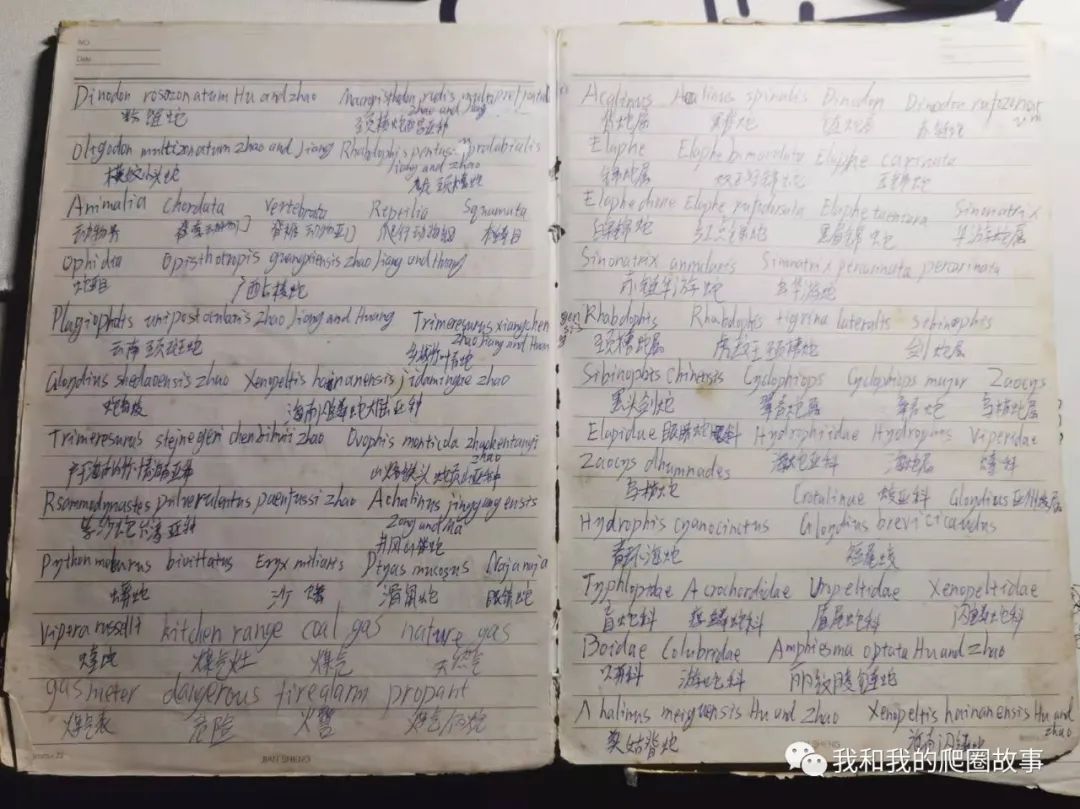 NO
Date
Dinodon rosozonatum Hu and zhao Macropisthodon rudis multiprefrontalis
zhao and Jiang
粉链蛇 颈棱蛇西昌亚种
Oligodon multizonatum zhao and Jiang Rhabdophis pentasupralabialis
Jiang and zhao
横纹小头蛇 颈槽蛇
Animalia Chordata Vertebrata Reptilia Squamata
动物界 脊索动物门 脊椎动物亚门 爬行动物纲 有鳞目
Ophidia Opisthotropis guangxiensis zhao Jiang and Huang
蛇亚目 广西后棱蛇
Plagiopholis unipostocularis zhao Jiang and Huang Trimeresurus xiangchengensis
zhao Jiang and Huang
云南颈斑蛇 乡城竹叶青蛇
Gloydius shedaoensis zhao Xenopeltis hainanensis jidamingae zhao
蛇岛蝮 海南闪鳞蛇大陆亚种
Trimeresurus stejnegeri chenbihuii zhao Ovophis monticola zhaokentangi
zhao
山烙铁头蛇亚种
Rsammodynastes pulverulentus papenfussi zhao Achalinus jinggangensis
Zong and Ma
紫沙蛇台湾亚种 井冈山脊蛇
Python molurus bivittatus Eryx miliaris Ptyas mucosus Naja naja
蟒蛇 沙蟒 滑鼠蛇 眼镜蛇
Vipera russelli kitchen range coal gas nature gas
蝰蛇 煤气灶 煤气 天然气
gas meter dangerous firealarm propant
煤气表 危险 火警
Acalinus Acalinus spinalis Dinodon Dinodon rufozonatum
脊蛇属 黑脊蛇 链蛇属 赤链蛇
Elaphe Elaphe bimaculata Elaphe carinata
锦蛇属 双斑锦蛇 王锦蛇
Elaphe dione Elaphe rufodorsata Elaphe taeniura Sinonatrix
白条锦蛇 红点锦蛇 黑眉锦蛇 华游蛇属
Sinonatrix annularis Sinonatrix percarinata percarinata
赤链华游蛇 乌华游蛇
Rhabdophis Rhabdophis tigrina lateralis sibinophis
颈槽蛇属 虎斑颈槽蛇 剑蛇属
Sibinophis chinensis Cyclophiops Cyclophiops major Zaocys
黑头剑蛇 翠青蛇属 翠青蛇 乌梢蛇属
Elapidae 眼镜蛇科 Hydrophiidae Hydrophis Viperidae
Zaocys dhumnades 海蛇亚科 海蛇属 蝰科
乌梢蛇 Crotalinae 蝮亚科 Gloydius 亚洲蝮属
Hydrophis cyanocinctus Gloydius brevicaudus
青环海蛇 短尾蝮
Typhlopidae Acrochordidae Uropeltidae Xenopeltidae
盲蛇科 瘰鳞蛇科 盾尾蛇科 闪鳞蛇科
Boidae Colubridae Amphiesma optata Hu and zhao
蟒科 游蛇科 丽纹腹链蛇
Ahalinus meiguensis Hu and zhao Xenopeltis hainanensis Hu and
zhao
美姑脊蛇 海南闪鳞蛇
我和我的爬圈故事